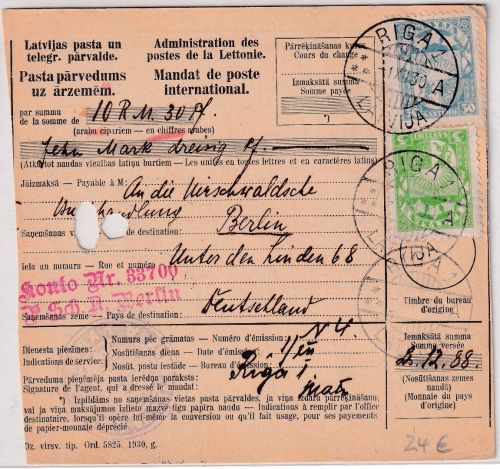 Latvijas pasta un
telegr. pārvalde.
Pasta pārvedums
uz ārzemēm.
Administration des
postes de la Lettonie.
Mandat de poste
international.
Pārrēķināšanas kurss
Cours du change
Izmaksātā summa
Somme payée
*)
par summu
de la somme de 10 R.M. 30 Pf.
(arabu cipariem — en chiffres arabes)
Zehn Mark dreissig Pf.
(Atkārtot naudas vienības latiņu burtiem — Les unités en toutes lettres et en caractères latins)
Jāizmaksā — Payable à M: An die Hirschwaldsche
Buchhandlung
Saņemšanas vieta Berlin
Unter den Linden 68
iela un N — Rue et numéro
Konto Nr. 33700
P. Sch. A. Berlin
Deutschland
Saņemšanas zeme — Pays de destination:
Timbre du bureau
d'origine
Dienesta piezīmes:
Indications de service:
Numurs pēc grāmatas — Numéro d'émission: N 4.
Nosūtīšanas diena — Date d'émission: 1/XII
Nosūt. pasta iestāde — Bureau d'émission: Riga 1
Iemaksātā summa
Somme versée
Ls. 12.88.
(Nosūtīšanas zemes
naudā)
(Monnaie du pays
d'origine)
Pārveduma pieņēmēja pasta ierēdņa paraksts:
Signature de l'agent, qui a dressé le mandat:
*) Izpildāms no saņemšanas vietas pasta pārvaldes, ja viņa izdara pārrēķināšanu,
vai ja viņa maksājumos izlieto mazvērtīgu papīra naudu — Indications à remplir par l'office
destinataire, lorsqu'il opère lui-même la conversion ou qu'il fait usage, pour ses payements
de papier-monnaie déprécié.
Dz. virsv. tip. Ord. 5825. 1930. g.
RIGA
1 XII 30 A
LATVIJA
RIGA
LATVIJA
24 €